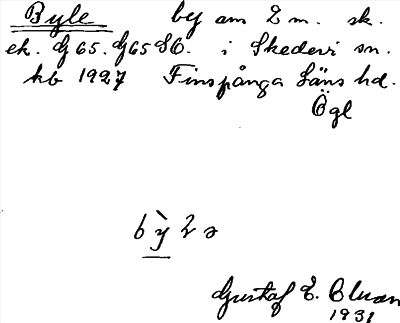 Byle by am 2 m. sk.
ek. G 65. G65 SO. i Skedevi sn.
kb 1927 Finspånga Läns hd.
Ögl
bỳ2ə
Gustaf E.
1931